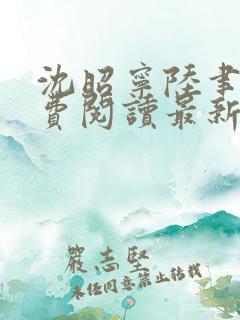 沈昭寧陸書
費閱讀最新
嚴志堅
未經同意禁止轉載